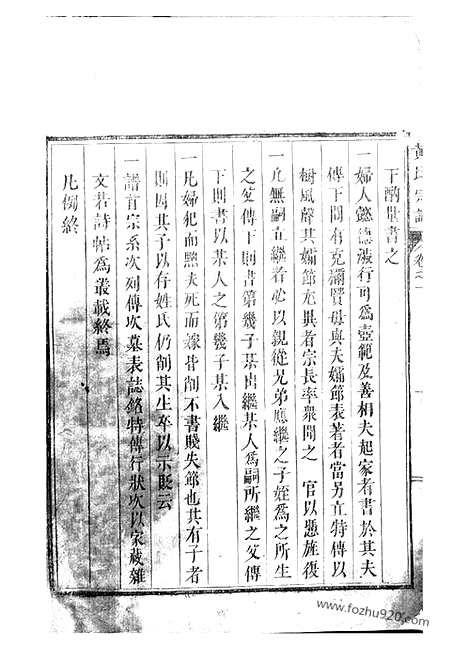 下酌量書之
一婦人懿德淑行可爲壼範及善相夫起家者書於其夫
傳下間有克彌賢母與夫孀節表著者當另立特傳以
樹風聲其孀節尤異者宗長率衆聞之 官以憑旌復
一凡無嗣立繼者必以親從兄弟應繼之子姪爲之所生
之父傳下則書第幾子某出繼某人爲嗣所繼之父傳
下則書以某人之第幾子某入繼
一凡婦犯而黜夫死而嫁皆削不書賤失節也其有子者
則因其子以存姓氏仍削其生卒以示貶云
一譜首宗系次列傳次墓表誌銘特傳行狀次以家藏雜
文若詩帖爲叢載終焉
凡例終
黃氏宗譜
卷之一
www.fozhu920.com